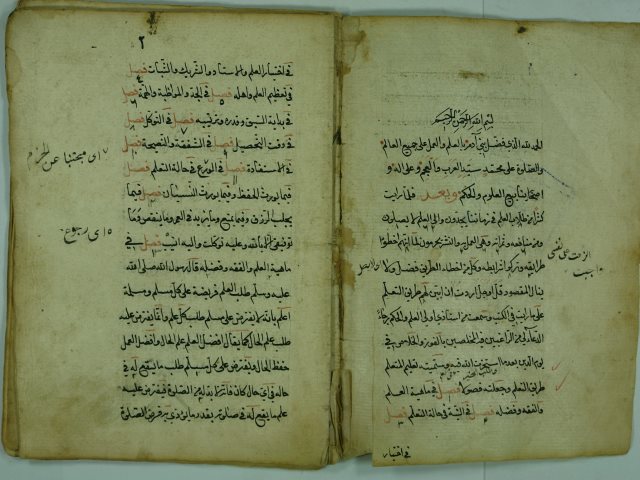 بسم الله الرحمن الرحيم
الحمد لله الذي فضل بني آدم بالعلم والعمل على جميع العالم
والصلوة على محمد سيد العرب والعجم وعلى اله و
اصحابه ينابيع العلوم والحكم وبعد فلما رايت
كثيرا من طلاب العلم في زماننا يجدون والى العلم لا يصلون
ومن منافعه وثمراته وهي العمل به والنشر يحرمون لما انهم اخطوا
طرايقه وتركوا شرايطه وكل من اخطاء الطريق فضل ولا
ينال المقصود قل او جل اردت ان ابين لهم طريق التعلم
على ما رايت في الكتب وسمعت من استاذي اولى العلم والحكم رجاء
الدعاء لي من الراغبين فيه المخلصين بالفوز والخلاص في
يوم الدين بعد ما استخرت الله فيه وسميته تعليم المتعلم
طريق التعلم وجعلته فصولا فصل في ماهية العلم
والفقه وفضله فصل في النية في حالة التعلم فصل
في اختيار
٢
في اختيار العلم والاستاد والشريك والثبات فصل
في تعظيم العلم واهله فصل في الجد والمواظبة والهمة فصل
في بداية السبق وقدره وترتيبه فصل في التوكل فصل
في وقت التحصيل فصل في الشفقة والنصيحة فصل
في الاستفادة فصل في الورع في حالة التعلم فصل
فيما يورث الحفظ وفيما يورث النسيان فصل فيما
يجلب الرزق وفيما يمنع وما يزيد في العمر وما ينقص وما
توفيقي الا بالله وعليه توكلت واليه انيب فصل في
ماهية العلم والفقه وفضله قال رسول الله صلى الله
عليه وسلم طلب العلم فريضة على كل مسلم ومسلمة
اعلم بانه لا يفترض على مسلم طلب كل علم وانما يفترض عليه
طلب علم الحال كما يقال افضل العلم علم الحال وافضل العمل
حفظ الحال ويفترض على كل مسلم طلب ما يقع له في
حاله في اي حال كان فانه لا بد له من الصلوة فيفترض عليه
علم ما يقع له في صلوته بقدر ما يؤدي به فرض الصلوة
اي رجوع